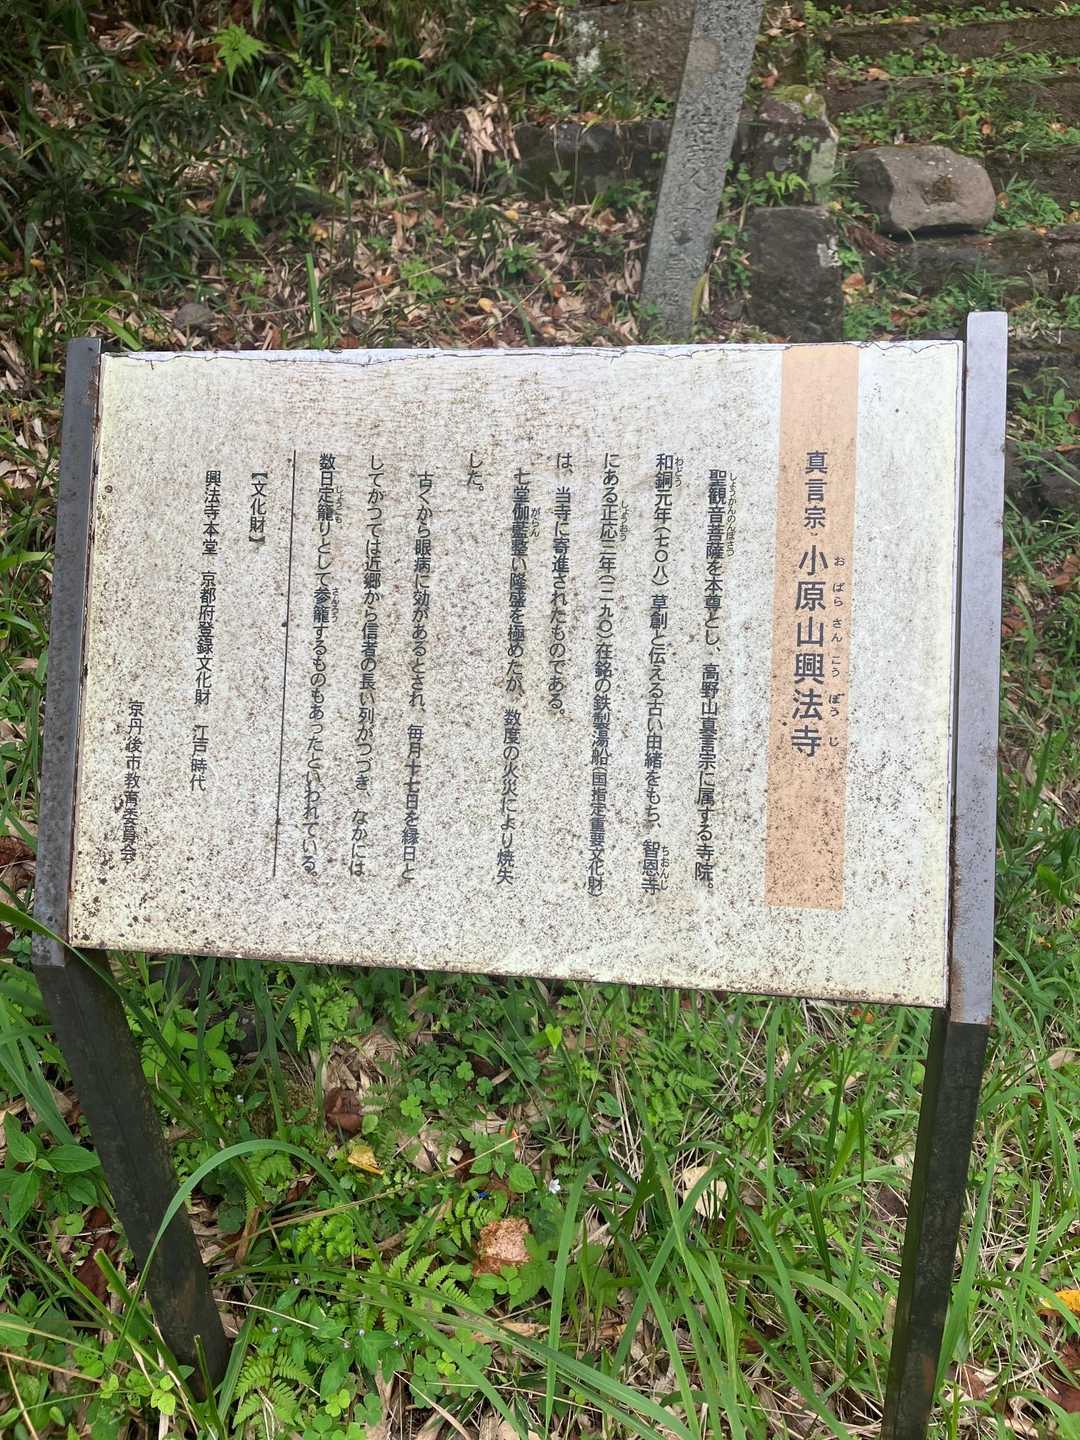 真言宗 小原山興法寺
おばらさんこうぼうじ
聖観音菩薩を本尊とし、高野山真言宗に属する寺院。
しょうかんのんぼさつ
和銅元年(七〇八)草創と伝える古い由緒をもち、智恩寺
わどう ちおんじ
にある正応三年(一二九〇)在銘の鉄製湯船(国指定重要文化財)
しょうおう
は、当寺に寄進されたものである。
七堂伽藍整い隆盛を極めたが、数度の火災により焼失
がらん
した。
古くから眼病に効があるとされ、毎月十七日を縁日と
してかつては近郷から信者の長い列がつづき、なかには
数日定籠りとして参籠するものもあったといわれている。
じょうごも さんろう
【文化財】
興法寺本堂 京都府登録文化財 江戸時代
京丹後市教育委員会